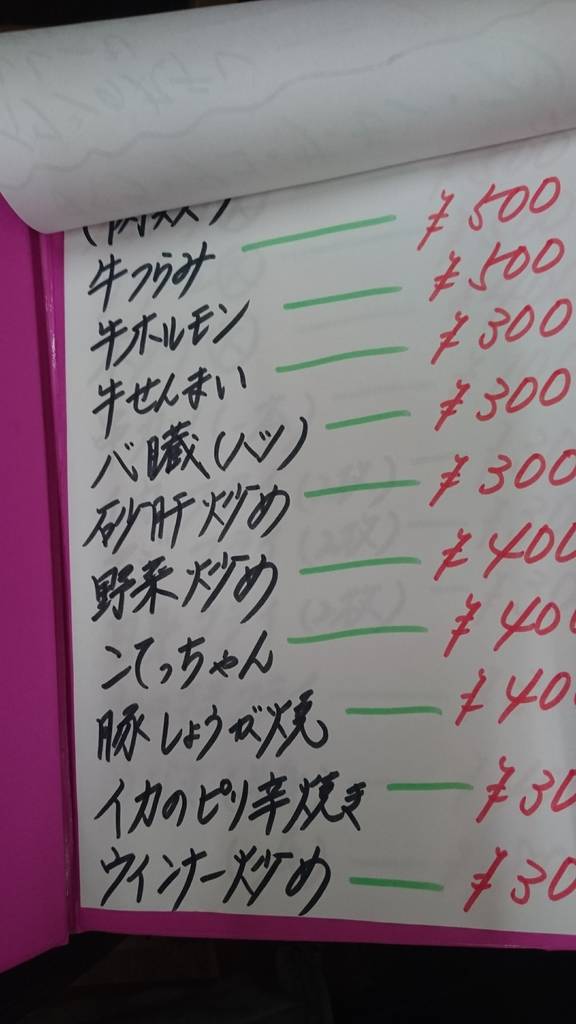 (肉類)
牛つらみ ¥500
牛ホルモン ¥500
牛せんまい ¥300
心臓(ハツ) ¥300
砂肝炒め ¥300
野菜炒め ¥400
こてっちゃん ¥400
豚しょうが焼 ¥400
イカのピリ辛焼き ¥30
ウィンナー炒め ¥30